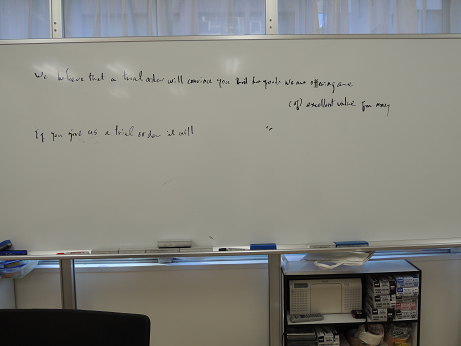 We believe that a trial order will convince you that the goods we are offering are
(of) excellent value for money
If you give us a trial order it will